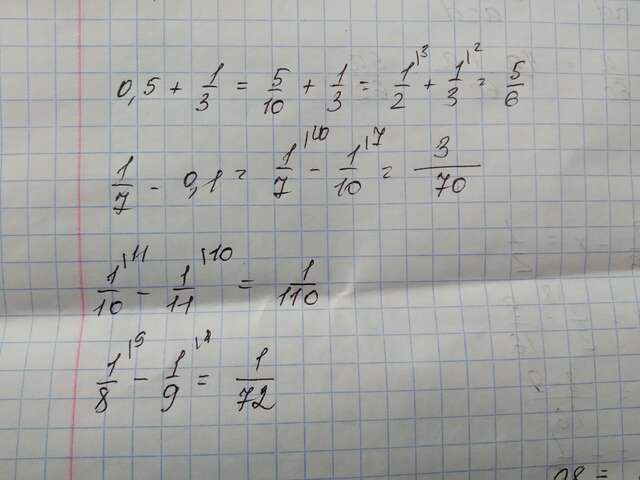 0,5 + 1/3 = 5/10 + 1/3 = 1/2 |3 + 1/3 |2 = 5/6
1/7 - 0,1 = 1/7 |10 - 1/10 |7 = 3/70
1/10 |11 - 1/11 |10 = 1/110
1/8 |9 - 1/9 = 1/72